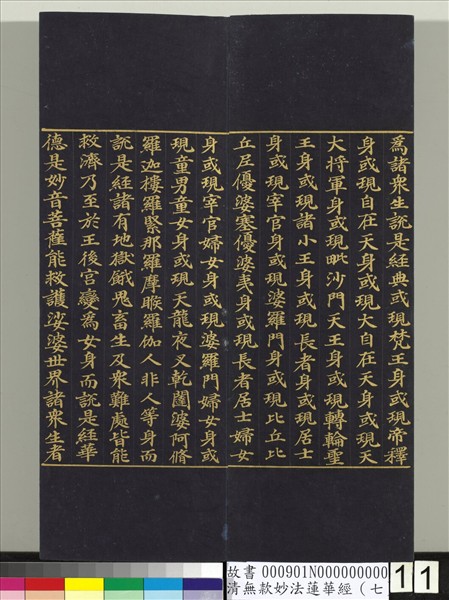 爲諸衆生說是經典或現梵王身或現帝釋
身或現自在天身或現大自在天身或現天
大將軍身或現毗沙門天王身或現轉輪聖
王身或現諸小王身或現長者身或現居士
身或現宰官身或現婆羅門身或現比丘比
丘尼優婆塞優婆夷身或現長者居士婦女
身或現宰官婦女身或現婆羅門婦女身或
現童男童女身或現天龍夜叉乾闥婆阿脩
羅迦樓羅緊那羅摩睺羅伽人非人等身而
說是經諸有地獄餓鬼畜生及衆難處皆能
救濟乃至於王後宮變爲女身而說是經華
德是妙音菩薩能救護娑婆世界諸衆生者
故書 000901N000000000
清無款妙法蓮華經（七
11